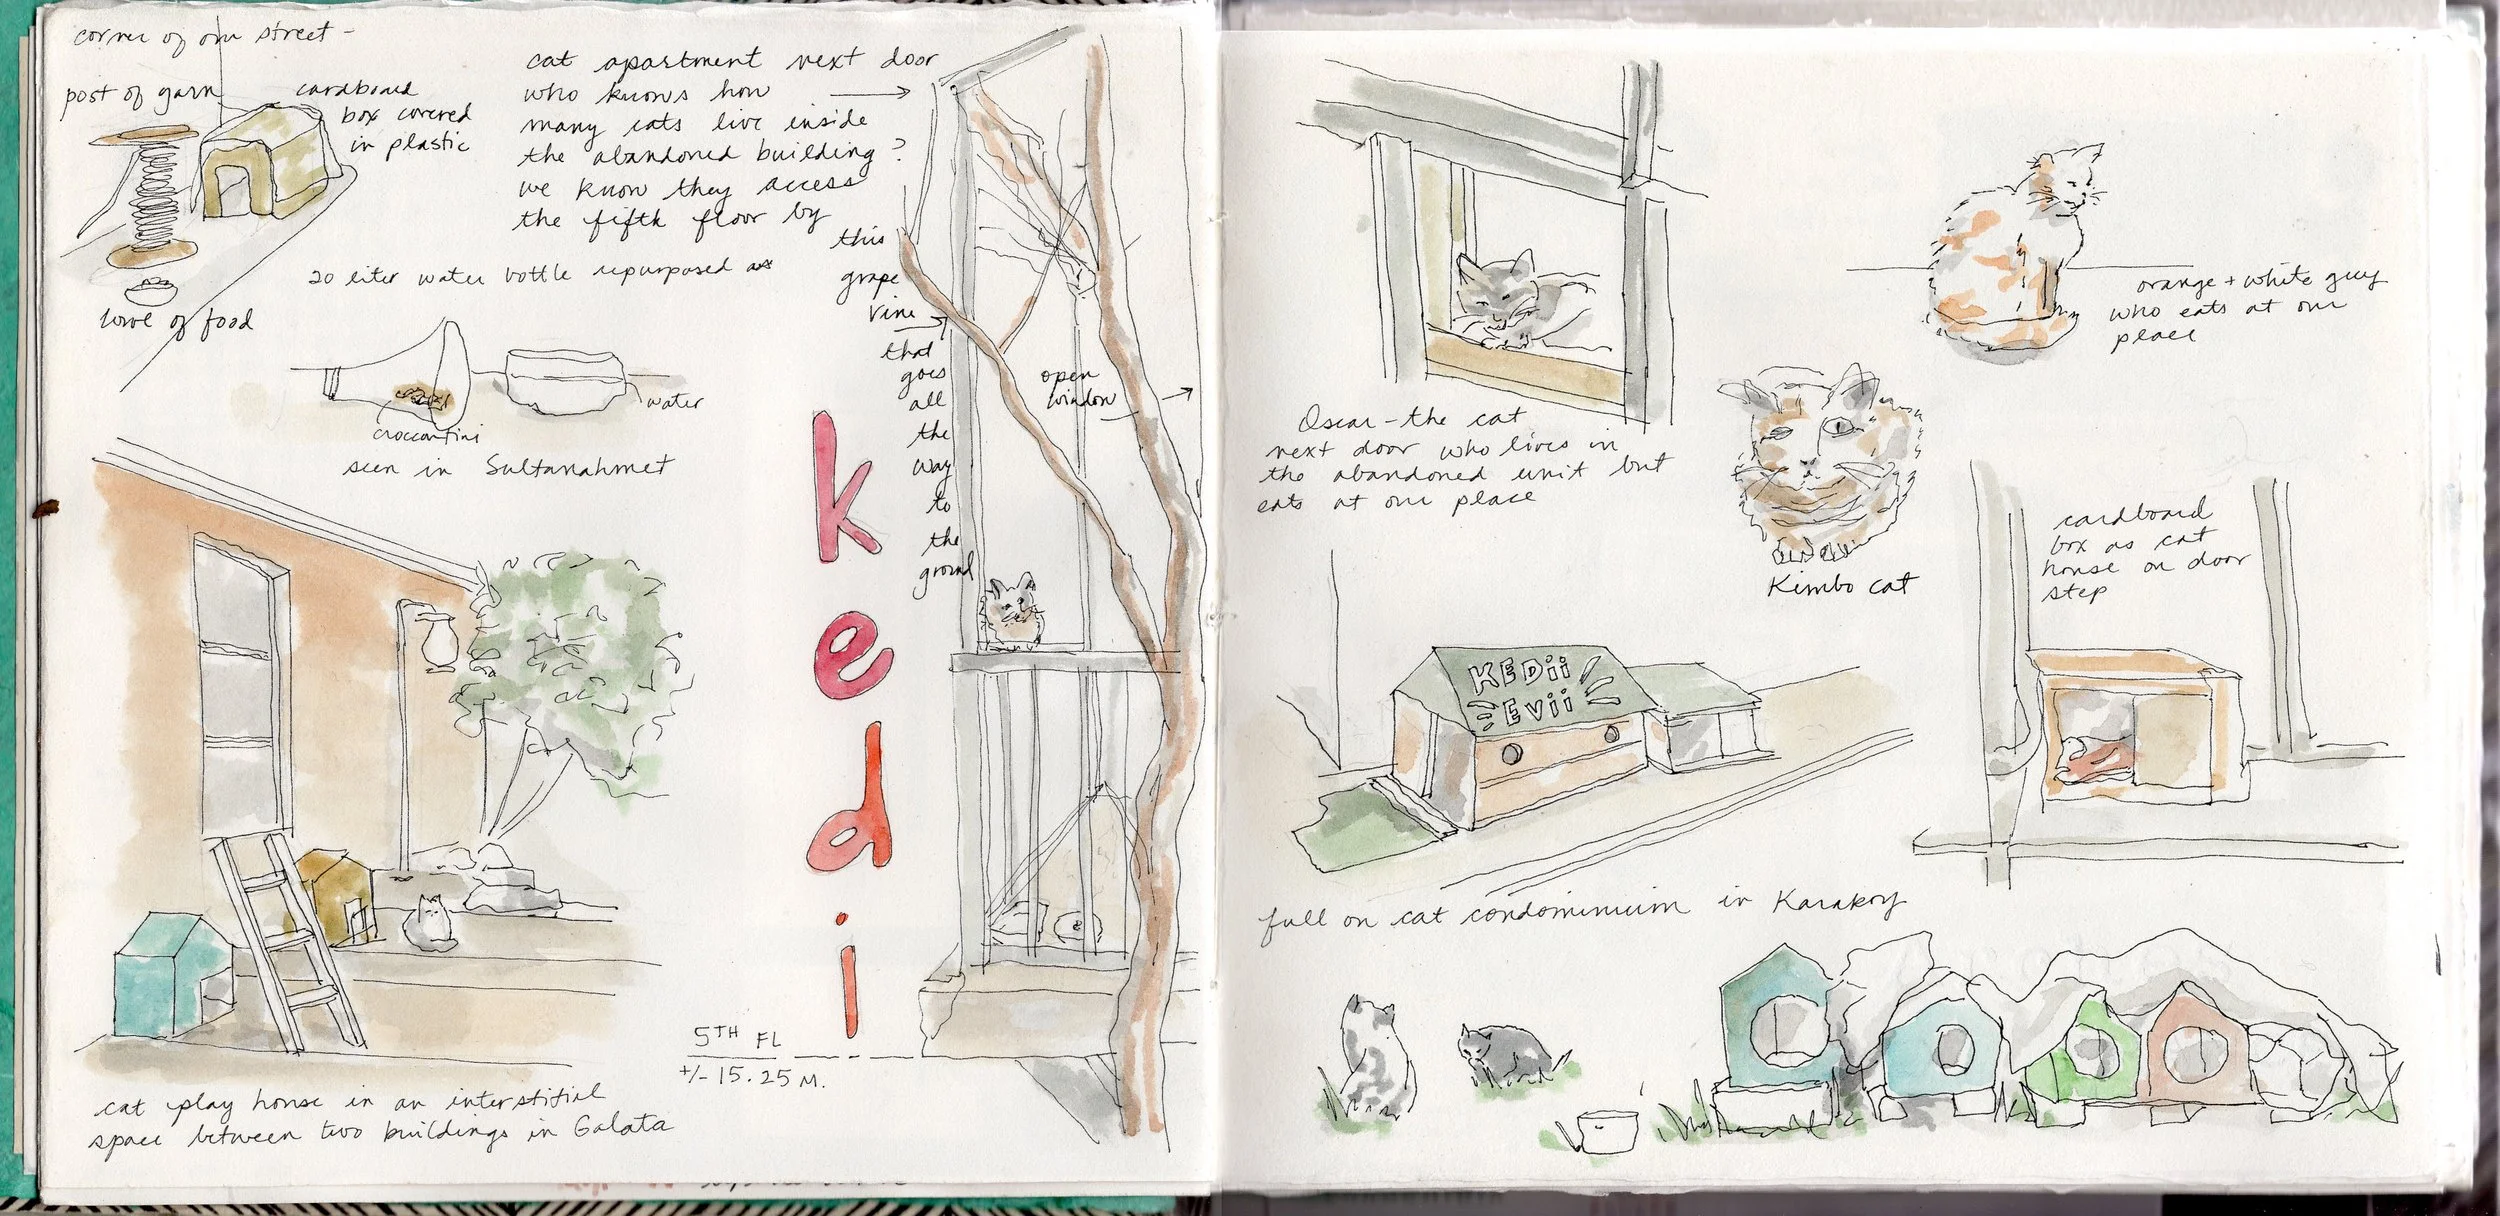 corner of our street -
post of yarn
cardboard
box covered
in plastic
bowl of food
cat apartment next door
who knows how
many cats live inside
the abandoned building?
we know they access
the fifth floor by
this
grape
vine
that
goes
all
the
way
to
the
ground
open
window
20 liter water bottle repurposed as
water
croccantini
seen in Sultanahmet
kedi
5TH FL
+/- 15.25 M.
cat play house in an interstitial
space between two buildings in Galata
Oscar - the cat
next door who lives in
the abandoned unit but
eats at our place
orange + white guy
who eats at our
place
Kimbo cat
cardboard
box as cat
house on door
step
KEDii
EVii
full on cat condominium in Karakoy